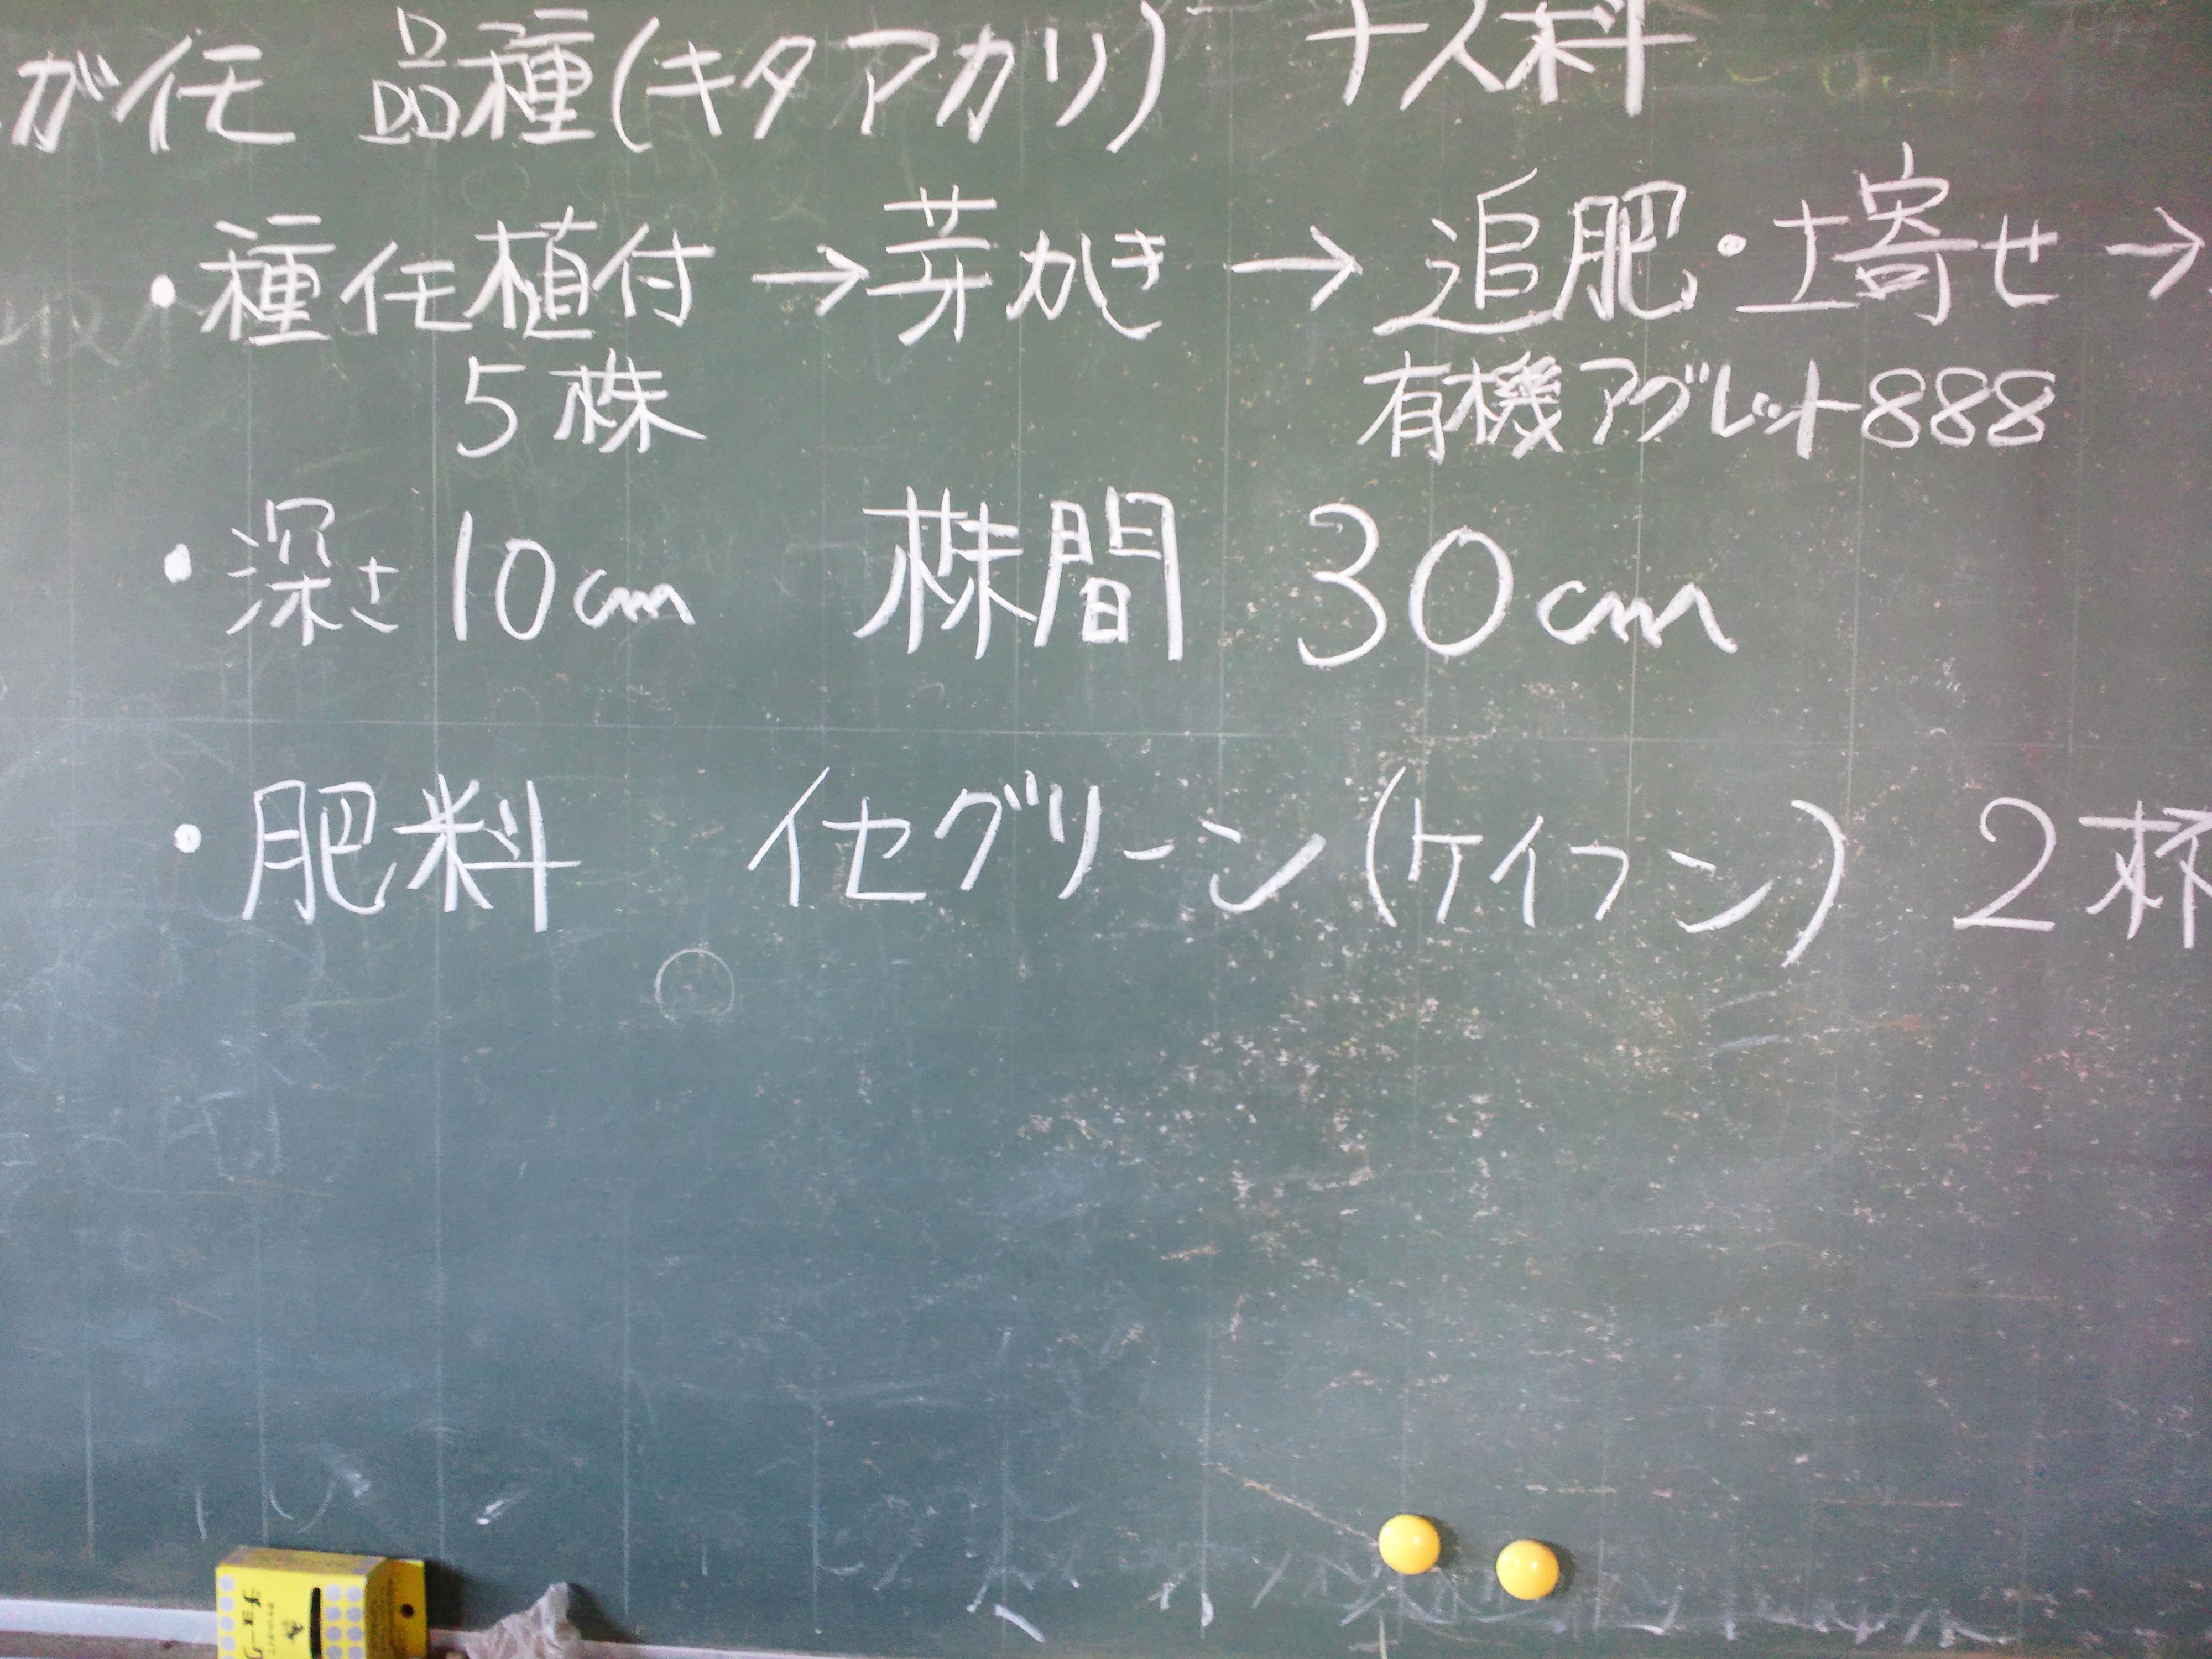 が任 品種(キタアカリ) ナス科
・種任植付 → 芽かき → 追肥・土寄せ →
5株 有機アグレット888
・深さ10cm 株間 30cm
・肥料 イセグリーン(ケイフン) 2杯
チョーク